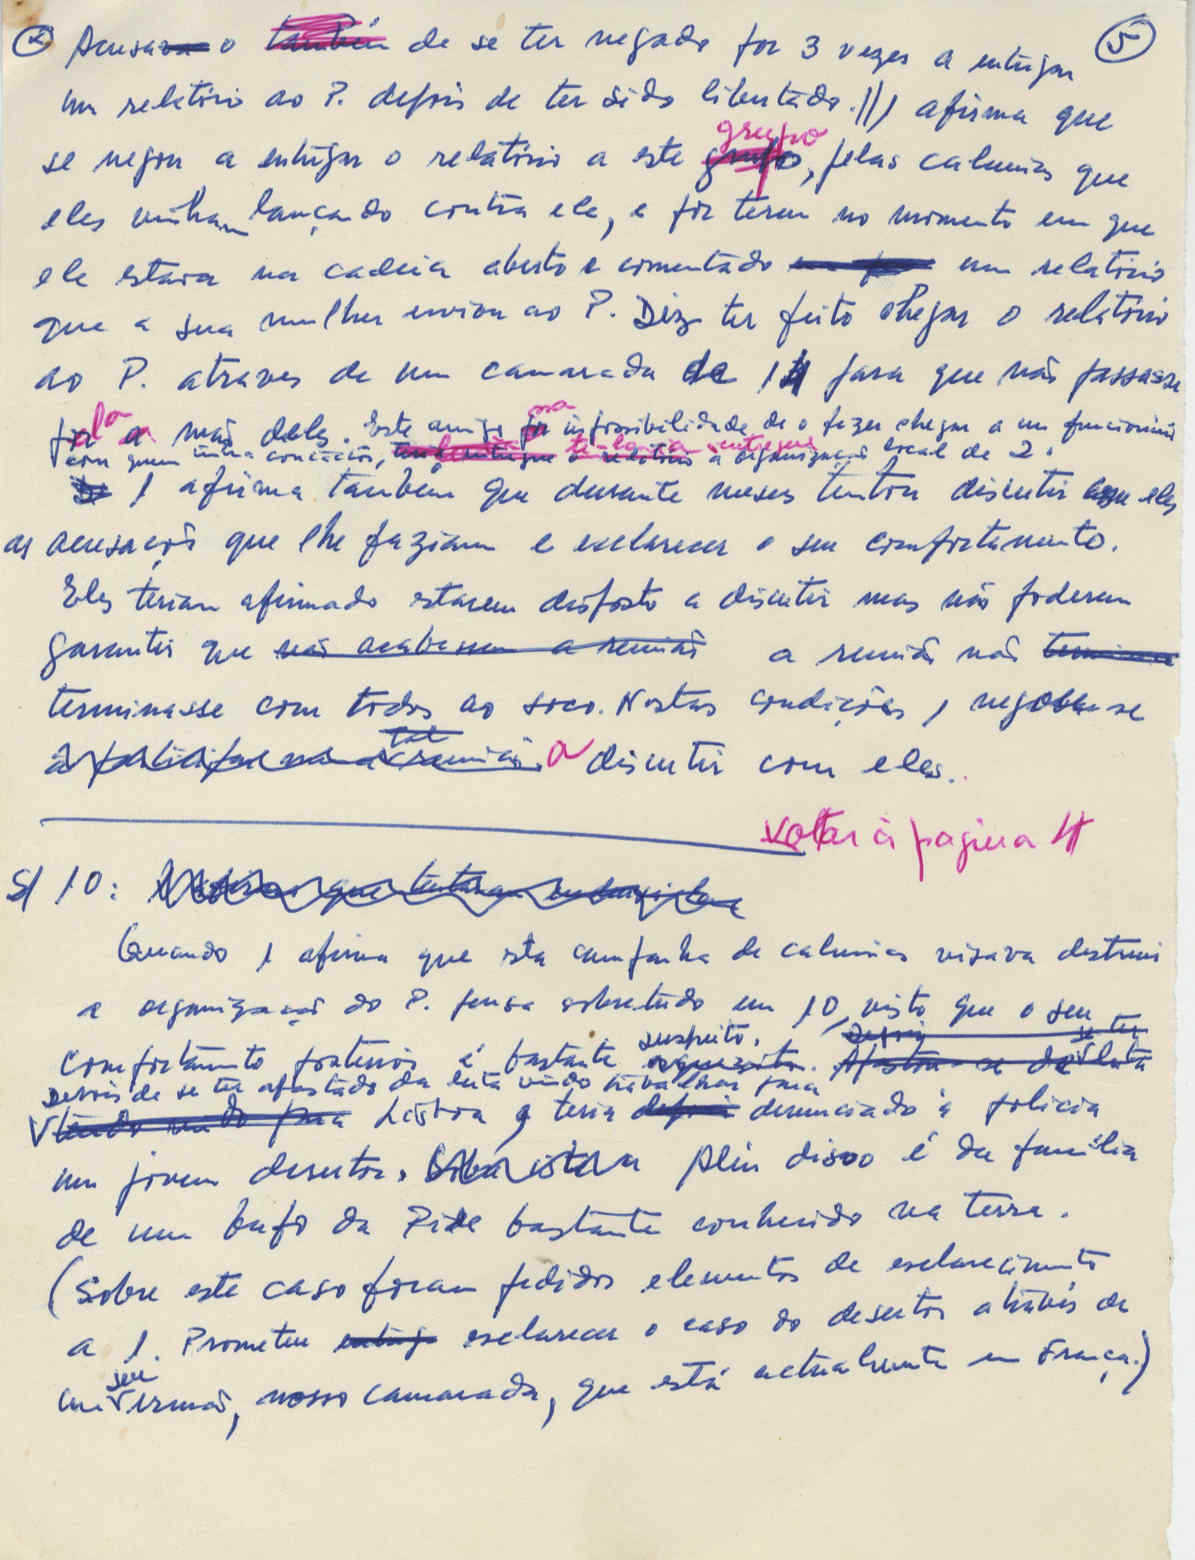 5
Acusava o também de se ter negado por 3 vezes a entregar
um relatório ao P. depois de ter sido libertado. 1 afirma que
grupo
se negou a entregar o relatório a este grupo, pelas calunias que
eles vinham lançando contra ele, e por terem no momento em que
ele estava na cadeia aberto e comentado um relatório
que a sua mulher enviou ao P. Diz ter feito chegar o relatório
ao P. atraves de um camarada de 14 para que não passasse
pela mão deles. Este amigo na impossibilidade de o fazer chegar a um funcionário
com quem tinha contactos, te-lo-ia entregue à organização local de 2.
1 afirma tambem que durante meses tentou discutir com eles
as acusações que lhe faziam e esclarecer o seu comportamento.
Eles teriam afirmado estarem disposto a discutir mas não poderem
garantir que não acabassem a reunião a reunião não terminasse
terminasse com todos ao soco. Nestas condições 1 negou-se
tal
a participar numa reunião a discutir com eles.
voltar à página 4
S/ 10:
Quando 1 afirma que esta campanha de calunias visava destruir
a organização do P. pensa sobretudo em 10, visto que o seu
suspeito. Depois se ter
comportamento posterior é bastante esquesito. Afastou-se da luta
Depois de se ter afastado da luta vindo trabalhar para
tendo vindo para Lisboa, teria depois denunciado à policia
um jovem desertor. Alem disso é da familia
de um bufo da Pide bastante conhecido na terra.
(Sobre este caso foram pedidos elementos de esclarecimento
a 1. Prometeu esclarecer o caso do desertor através de
seu
um irmão, nosso camarada, que está actualmente em França.)